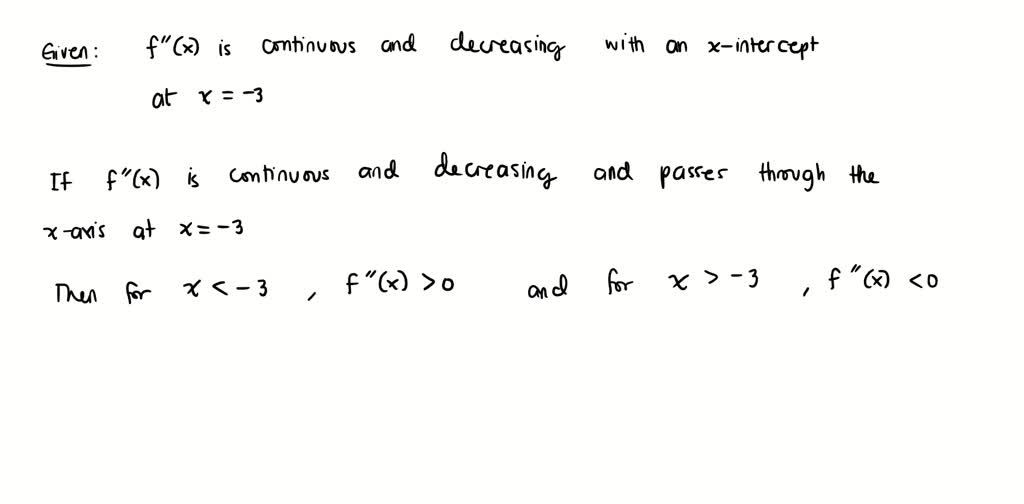 Given: f"(x) is continuous and decreasing with an x-intercept
at x = -3
If f"(x) is continuous and decreasing and passes through the
x-axis at x = -3
Then for x < -3 , f"(x) > 0 and for x > -3 , f"(x) < 0